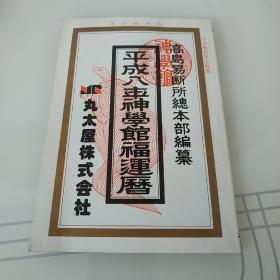 高島易断所總本部編纂
神學館
平成八年神學館福運暦
丸太屋株式会社